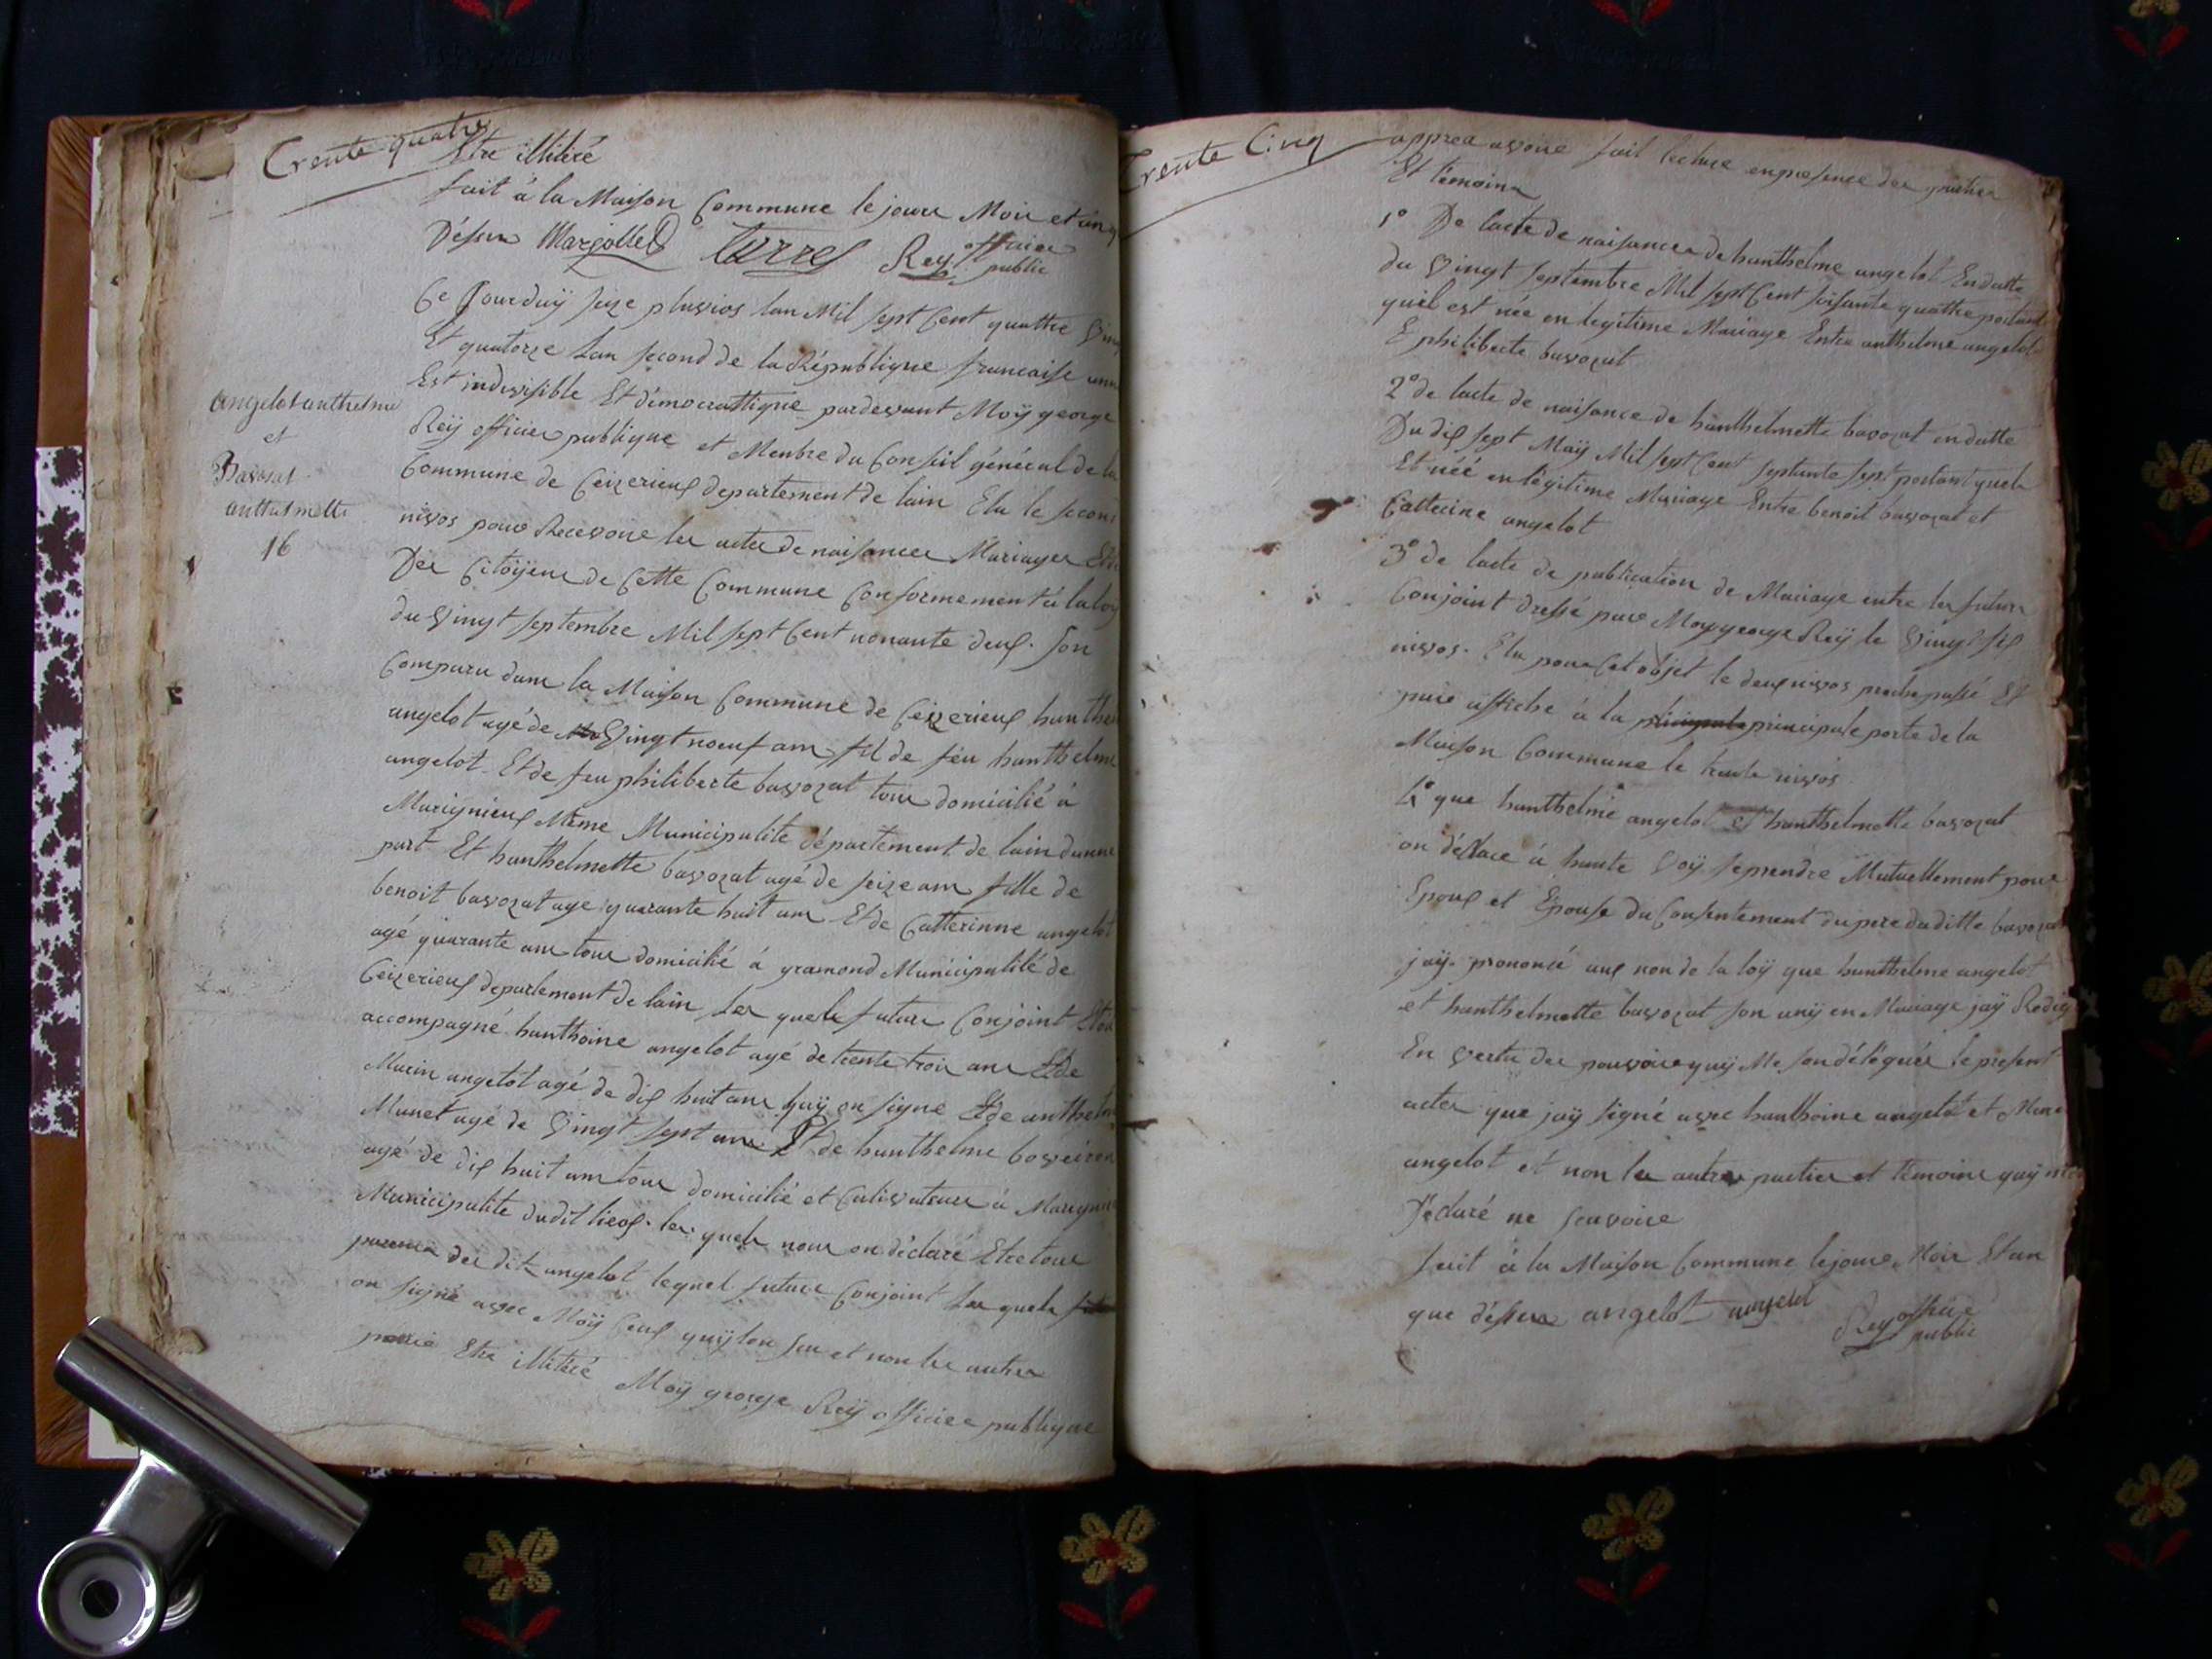 trente quatre
Etre illiteré
fait à la Maison Commune le jours Mois et an
Désus Marjollet Carrel Rey officier
public
Ce Jourduÿ seize pluvios lan Mil sept Cent quattre Vin
Et quatorze Lan second de la République francaise une
Est indivisible Et démocrattique pardevant Moÿ george
Reÿ officier publique et Menbre du Conseil général de la
Commune de Ceizerieux departement de lain Elu le second
nivos pour Recevoir les actes de naisances Mariages Et
Des Citoÿens de Cette Commune Conformement à la loÿ
du Vingt septembre Mil sept Cent nonante deux. son
Comparu dans la Maison Commune de Ceizerieux hanthel
angelot agé de Vingt noeuf ans fil de feu hanthelme
angelot Et de feu philiberte bavozat tous domicilié à
Marignieux Même Municipalité département de lain dunne
part Et hanthelmette bavozat agé de seize ans fille de
benoit bavozat age quarante huit ans Et de Catterinne angelot
agé quarante ans tous domicilié à gramond Municipalité de
Ceizerieux departement de lain Les quels future Conjoint Etai
accompagné hanthoine angelot agé de trente trois ans Et de
Marin angelot agé de dix huit ans quÿ on signe Et de anthelm
Munet agé de Vingt sept ans Et de hanthelme boveiron
agé de dix huit ans tous domicilié et Cultivateurs à Marignieu
Municipalite dudit lieux. les quels nous on déclaré Etre tous
parens des dit angelot lequel future Conjoint Les quels
on signé avec Moÿ Ceux quÿ lon seu et non les autres
partie Etre illiteré Moÿ george Reÿ officier publique
angelot anthelme
et
Bavosat
anthelmette
16
Trente Cinq
apprea avoire fait lecture en presence des parties
Et temoins
1° De lacte de naisances de hanthelme angelot En datte
du Vingt septembre Mil sept Cent soisante quattre portant
quil est née en legitime Mariage Entre anthelme angelot
E philiberte bavozat
2° de lacte de naisance de hanthelmette bavozat en datte
Du dix sept Maÿ Mil sept Cent septante sept portant quele
Et néé en légitime Mariage Entre benoit bavozat et
Catterine angelot
3° de lacte de publication de Mariage entre les futurs
Conjoint dressé par Moÿ george Reÿ le Vingt six
nivos. Elu pour Cet objet le deux nivos proche passé Et
puis affiche à la principale porte de la
Maison Commune le trente nivos.
4° que hanthelme angelot et hanthelmette bavozat
on déclare à haute Voÿ se prendre Mutuellement pour
Epoux et Epouse du Consentement du pere duditte bavozat
jaÿ prononcé aux non de la loÿ que hanthelme angelot
et hanthelmette bavozat son unÿ en Mariage jaÿ Redig
En vertu des pouvoire quÿ Me son délégués le present
actes que jaÿ signé avec hanthoine angelot et Marin
angelot et non les autres parties et témoins quÿ
Déclaré ne scavoire
fait à la Maison Commune le jours Mois Et an
que désus angelot angelot Rey officier
public